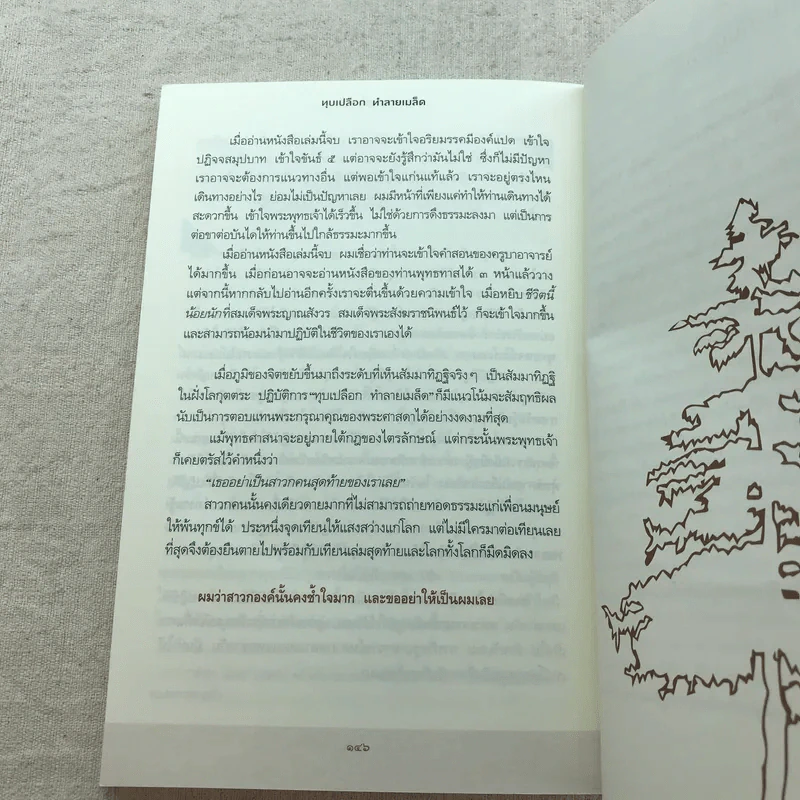 ทุบเปลือก ทำลายเมล็ด
เมื่ออ่านหนังสือเล่มนี้จบ เราอาจจะเข้าใจอริยมรรคมีองค์แปด เข้าใจ
ปฏิจจสมุปบาท เข้าใจขันธ์ ๕ แต่อาจจะยังรู้สึกว่ามันไม่ใช่ ซึ่งก็ไม่มีปัญหา
เราอาจจะต้องการแนวทางอื่น แต่พอเข้าใจแก่นแท้แล้ว เราจะอยู่ตรงไหน
เดินทางอย่างไร ย่อมไม่เป็นปัญหาเลย ผมมีหน้าที่เพียงแค่ทำให้ท่านเดินทางได้
สะดวกขึ้น เข้าใจพระพุทธเจ้าได้เร็วขึ้น ไม่ใช่ด้วยการดึงธรรมะลงมา แต่เป็นการ
ต่อขาต่อบันไดให้ท่านขึ้นไปใกล้ธรรมะมากขึ้น
เมื่ออ่านหนังสือเล่มนี้จบ ผมเชื่อว่าท่านจะเข้าใจคำสอนของครูบาอาจารย์
ได้มากขึ้น เมื่อก่อนอาจจะอ่านหนังสือของท่านพุทธทาสได้ ๓ หน้าแล้ววาง
แต่จากนี้หากกลับไปอ่านอีกครั้งเราจะตื่นขึ้นด้วยความเข้าใจ เมื่อหยิบ ชีวิตนี้
น้อยนัก ที่สมเด็จพระญาณสังวร สมเด็จพระสังฆราชนิพนธ์ไว้ ก็จะเข้าใจมากขึ้น
และสามารถน้อมนำมาปฏิบัติในชีวิตของเราเองได้
เมื่อภูมิของจิตขยับขึ้นมาถึงระดับที่เห็นสัมมาทิฏฐิจริงๆ เป็นสัมมาทิฏฐิ
ในฝั่งโลกุตตระ ปฏิบัติการ “ทุบเปลือก ทำลายเมล็ด” ก็มีแนวโน้มจะสัมฤทธิผล
นับเป็นการตอบแทนพระกรุณาคุณของพระศาสดาได้อย่างงดงามที่สุด
แม้พุทธศาสนาจะอยู่ภายใต้กฎของไตรลักษณ์ แต่กระนั้นพระพุทธเจ้า
ก็เคยตรัสไว้คำหนึ่งว่า
“เธออย่าเป็นสาวกคนสุดท้ายของเราเลย”
สาวกคนนั้นคงเดียวดายมากที่ไม่สามารถถ่ายทอดธรรมะแก่เพื่อนมนุษย์
ให้พ้นทุกข์ได้ ประหนึ่งจุดเทียนให้แสงสว่างแก่โลก แต่ไม่มีใครมาต่อเทียนเลย
ที่สุดจึงต้องยืนตายไปพร้อมกับเทียนเล่มสุดท้ายและโลกทั้งโลกก็มืดมิดลง
ผมว่าสาวกองค์นั้นคงช้ำใจมาก และขออย่าให้เป็นผมเลย
๑๔๖